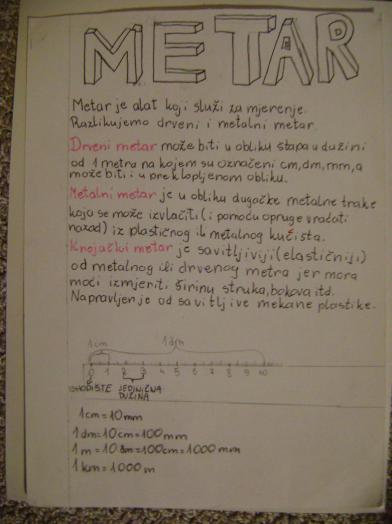 METAR
Metar je alat koji služi za mjerenje.
Razlikujemo drveni i metalni metar.
Drveni metar može biti u obliku štapa u dužini
od 1 metra na kojem su označeni cm, dm, mm, a
može biti i u preklopljenom obliku.
Metalni metar je u obliku dugačke metalne trake
koja se može izvlačiti (i pomoću opruge vraćati
nazad) iz plastičnog ili metalnog kućišta.
Krojački metar je savitljiviji (elastičniji)
od metalnog ili drvenog metra jer mora
moći izmjerit širinu struka, bokova itd.
Napravljen je od savitljive mekane plastike.
1cm 1dm
0 1 2 3 4 5 6 7 8 9 10
ISHODIŠTE JEDINIČNA
DUŽINA
1cm=10mm
1dm=10cm=100mm
1m=10dm=100cm=1000mm
1km=1000m